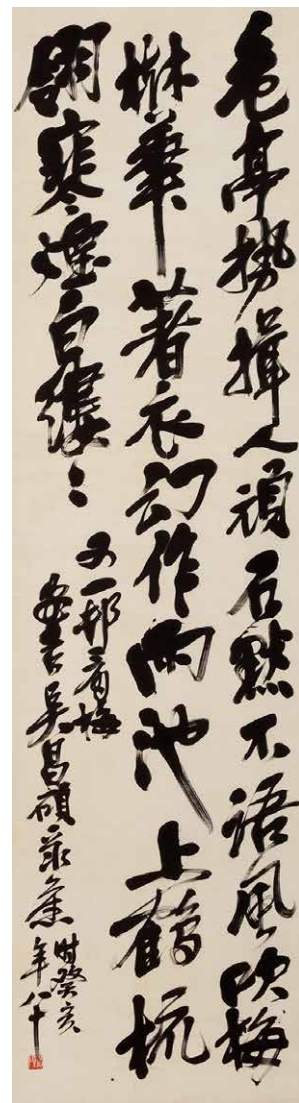 危亭勢揖人頑石默不語風吹梅
華著衣幻作雨池上鶴梳
寒煙白縷〻
又一邨看梅
安吉吳昌碩
時癸亥
年八十